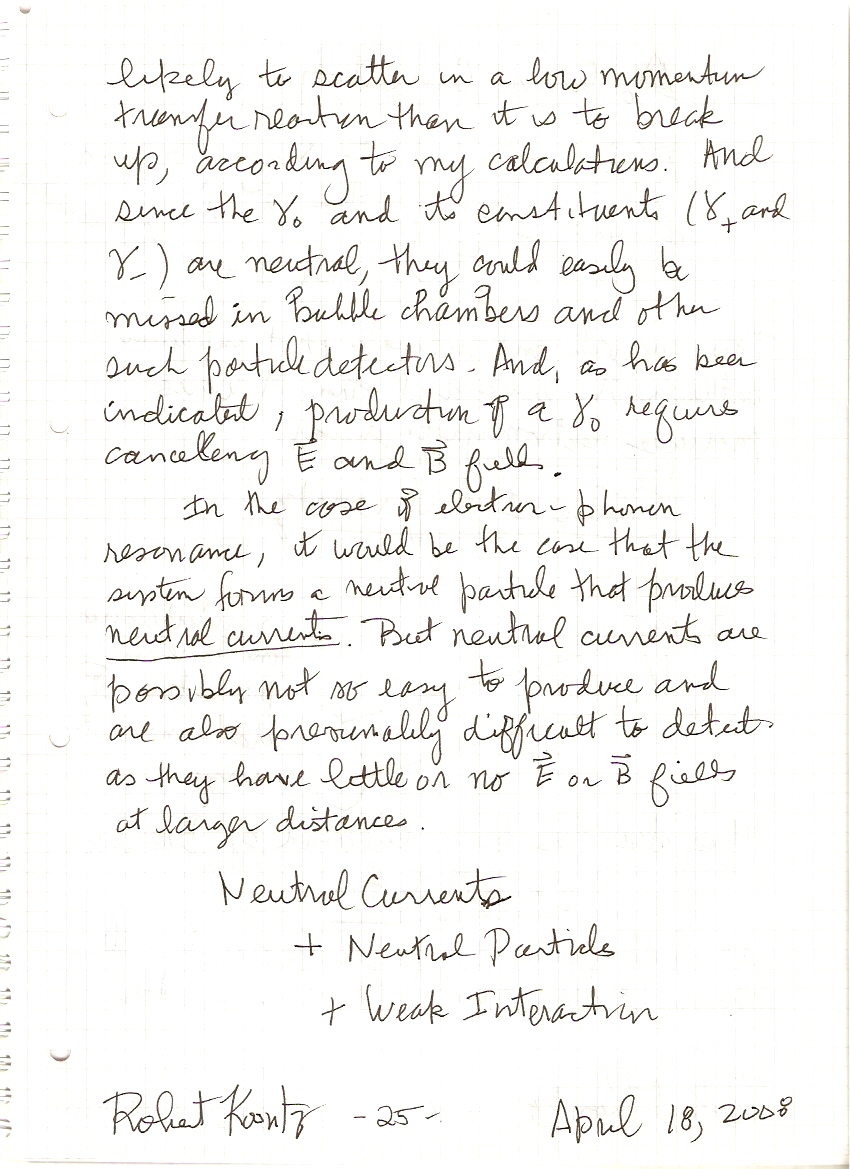 likely to scatter in a low momentum
transfer reaction than it is to break
up, according to my calculations. And
since the γ₀ and its constituents (γ₊ and
γ₋) are neutral, they could easily be
missed in Bubble chambers and other
such particle detectors. And, as has been
indicated, production of a γ₀ requires
canceling E⃗ and B⃗ fields.
In the case of electron-phonon
resonance, it would be the case that the
system forms a neutral particle that produces
neutral currents. But neutral currents are
possibly not so easy to produce and
are also presumably difficult to detect
as they have little or no E⃗ or B⃗ fields
at larger distances.
Neutral Currents
+ Neutral Particles
+ Weak Interaction
Robert Koontz -25- April 18, 2008